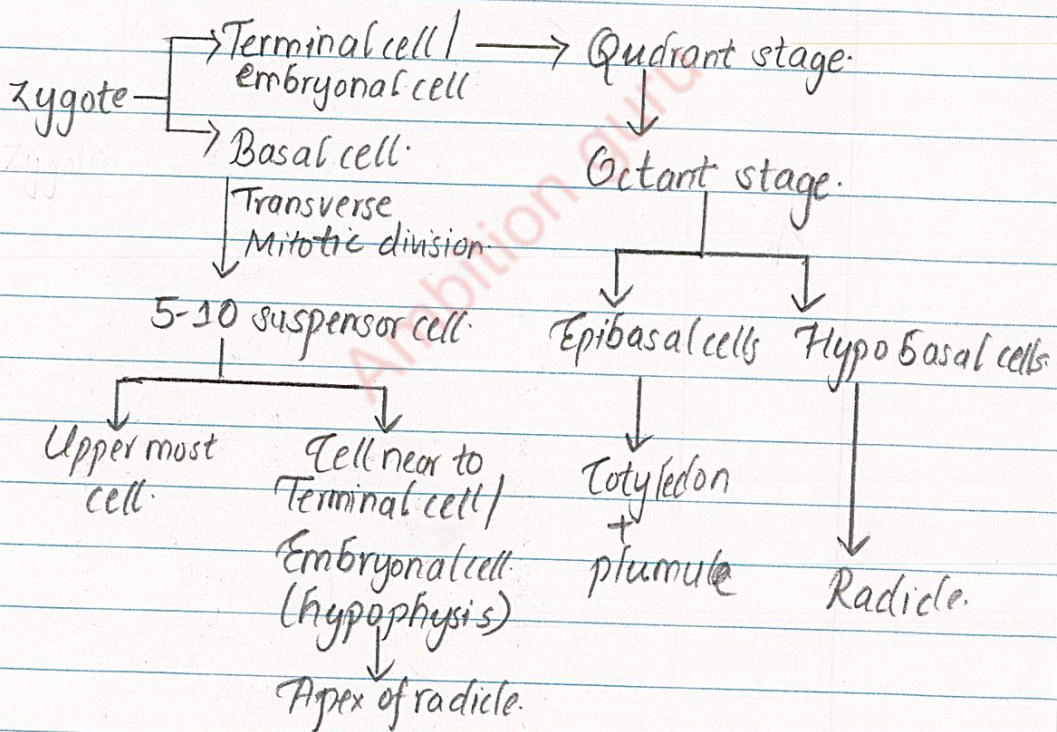 Zygote
Terminal cell/
embryonal cell
Qudrant stage.
Basal cell.
Octant stage.
Transverse
Mitotic division.
5-10 suspensor cell.
Epibasal cells
Hypobasal cells.
Upper most
cell.
Cell near to
Terminal cell/
Embryonal cell.
(hypophysis)
Apex of radicle.
Cotyledon
+
plumule
Radicle.
Ambition guru
Zygote